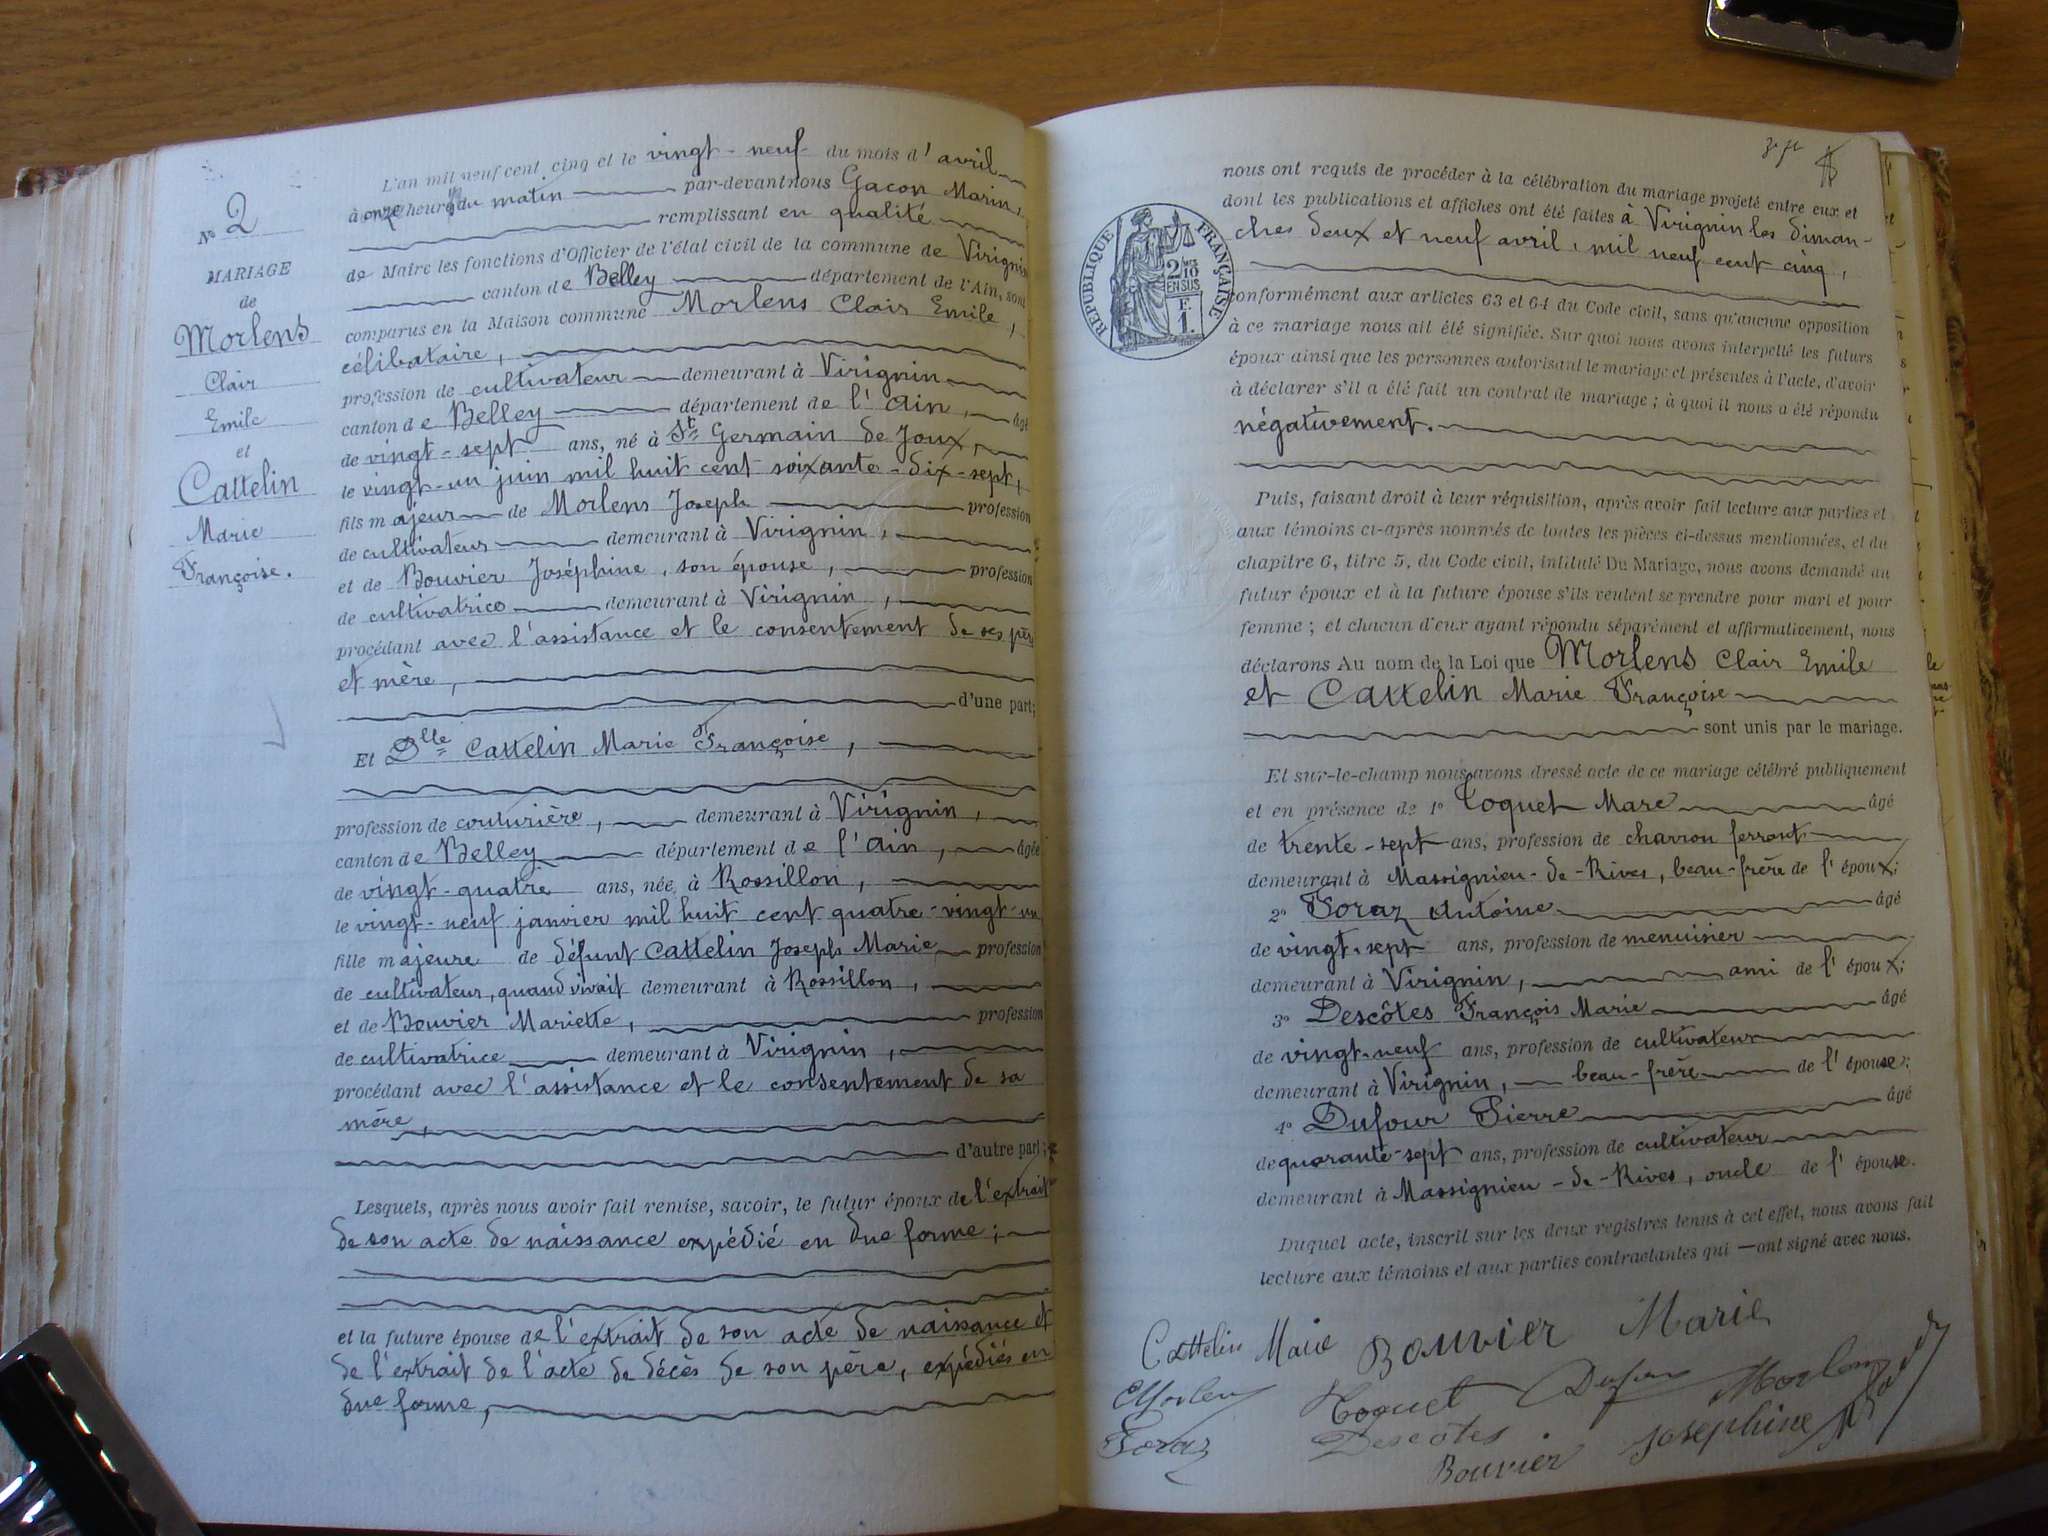 No 2
MARIAGE
de
Morlens
Clair
Emile
et
Cattelin
Marie
Françoise.
L'an mil neuf cent cinq et le vingt-neuf du mois d'avril
à onze heures du matin par-devant nous Gacon Marin,
remplissant en qualité
de Maire les fonctions d'Officier de l'état civil de la commune de Virignin
canton de Belley département de l'Ain, sont
comparus en la Maison commune Morlens Clair Emile,
célibataire,
profession de cultivateur demeurant à Virignin
canton de Belley département de l'Ain, âgé
de vingt-sept ans, né à St Germain de Joux,
le vingt-un juin mil huit cent soixante-dix-sept,
fils majeur de Morlens Joseph profession
de cultivateur demeurant à Virignin,
et de Bouvier Joséphine, son épouse, profession
de cultivatrice demeurant à Virignin,
procédant avec l'assistance et le consentement de ses père
et mère,
d'une part;
Et Dlle Cattelin Marie Françoise,
profession de couturière, demeurant à Virignin,
canton de Belley département de l'Ain, âgée
de vingt-quatre ans, née à Rossillon,
le vingt-neuf janvier mil huit cent quatre-vingt-un
fille majeure de défunt Cattelin Joseph Marie profession
de cultivateur, quand vivait demeurant à Rossillon,
et de Bouvier Mariette, profession
de cultivatrice demeurant à Virignin,
procédant avec l'assistance et le consentement de sa
mère,
d'autre part;
Lesquels, après nous avoir fait remise, savoir, le futur époux de l'extrait
de son acte de naissance expédié en due forme;
et la future épouse de l'extrait de son acte de naissance et
de l'extrait de l'acte de décès de son père, expédiés en
due forme,
nous ont requis de procéder à la célébration du mariage projeté entre eux et
dont les publications et affiches ont été faites à Virignin les diman-
ches deux et neuf avril, mil neuf cent cinq,
REPUBLIQUE FRANÇAISE
2 10
EN SUS
F.
1.
conformément aux articles 63 et 64 du Code civil, sans qu'aucune opposition
à ce mariage nous ait été signifiée. Sur quoi nous avons interpellé les futurs
époux ainsi que les personnes autorisant le mariage et présentes à l'acte, d'avoir
à déclarer s'il a été fait un contrat de mariage; à quoi il nous a été répondu
négativement.
Puis, faisant droit à leur réquisition, après avoir fait lecture aux parties et
aux témoins ci-après nommés de toutes les pièces ci-dessus mentionnées, et du
chapitre 6, titre 5, du Code civil, intitulé Du Mariage, nous avons demandé au
futur époux et à la future épouse s'ils veulent se prendre pour mari et pour
femme; et chacun d'eux ayant répondu séparément et affirmativement, nous
déclarons Au nom de la Loi que Morlens Clair Emile
et Cattelin Marie Françoise
sont unis par le mariage.
Et sur-le-champ nous avons dressé acte de ce mariage célébré publiquement
et en présence de 1° Toquet Marc âgé
de trente-sept ans, profession de charron ferrant
demeurant à Massignieu-de-Rives, beau-frère de l'époux;
2° Foraz Antoine âgé
de vingt-sept ans, profession de menuisier
demeurant à Virignin, ami de l'époux;
3° Descôtes François Marie âgé
de vingt-neuf ans, profession de cultivateur
demeurant à Virignin, beau-frère de l'épouse;
4° Dufour Pierre âgé
de quarante-sept ans, profession de cultivateur
demeurant à Massignieu-de-Rives, oncle de l'épouse.
Duquel acte, inscrit sur les deux registres tenus à cet effet, nous avons fait
lecture aux témoins et aux parties contractantes qui ont signé avec nous.
Cattelin Marie Bouvier Marie
Morlens Toquet Dufour Morlens
Foraz Descotes Joséphine
Bouvier